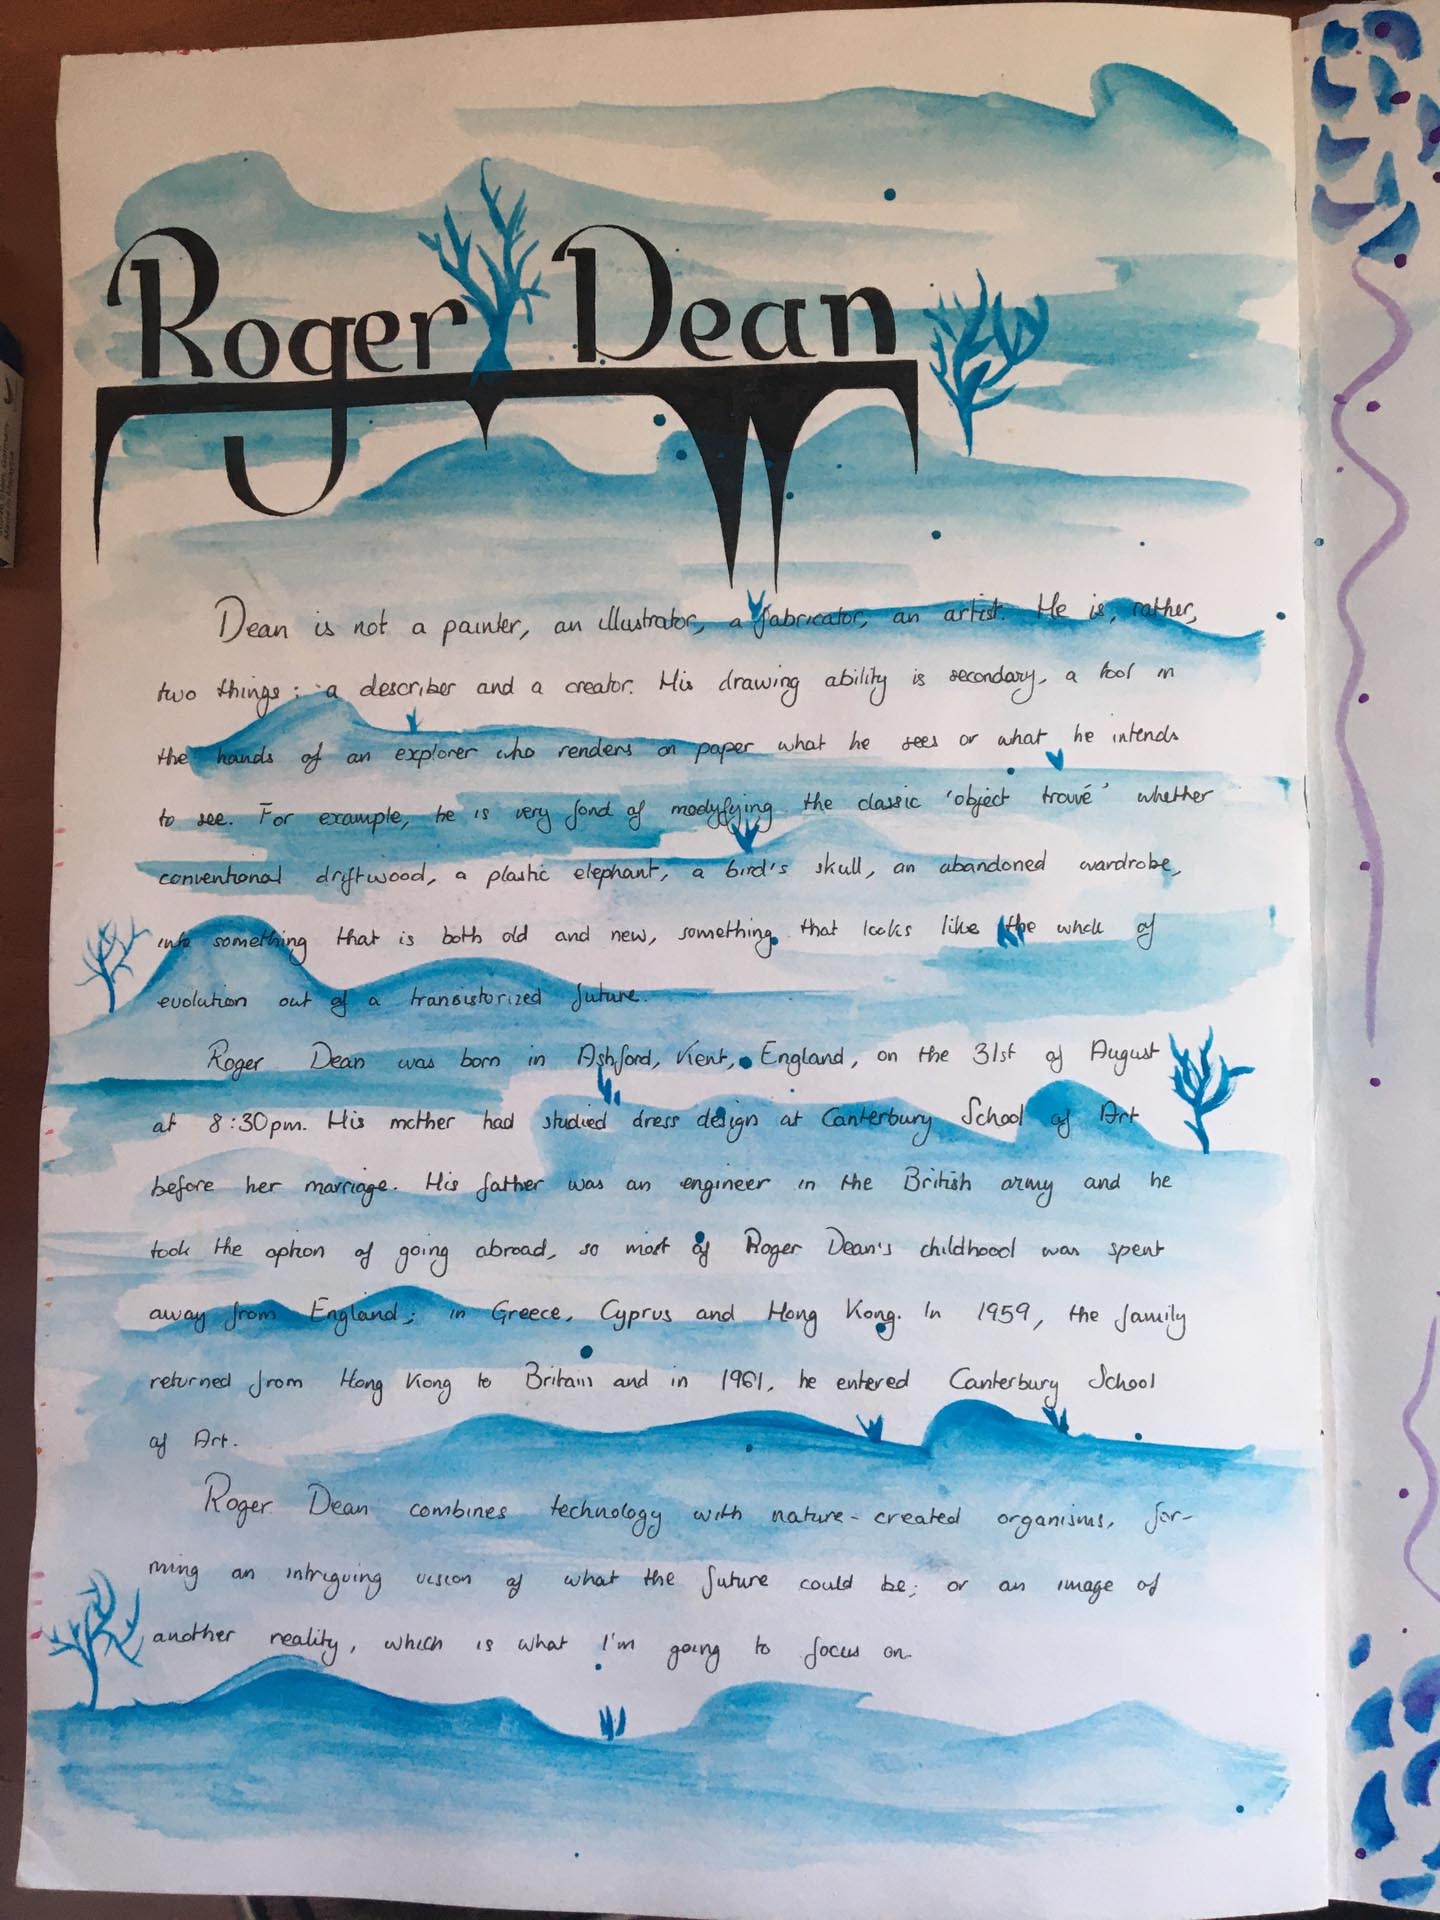 Roger Dean
Dean is not a painter, an illustrator, a fabricator, an artist. He is, rather,
two things: a describer and a creator. His drawing ability is secondary, a tool in
the hands of an explorer who renders on paper what he sees or what he intends
to see. For example, he is very fond of modyfying the classic 'object trouvé' whether
conventional driftwood, a plastic elephant, a bird's skull, an abandoned wardrobe,
into something that is both old and new, something that looks like the whole of
evolution out of a transistorized future.
Roger Dean was born in Ashford, Kent, England, on the 31st of August
at 8:30pm. His mother had studied dress design at Canterbury School of Art
before her marriage. His father was an engineer in the British army and he
took the option of going abroad, so most of Roger Dean's childhood was spent
away from England; in Greece, Cyprus and Hong Kong. In 1959, the family
returned from Hong Kong to Britain and in 1961, he entered Canterbury School
of Art.
Roger Dean combines technology with nature-created organisms, for-
ming an intriguing vision of what the future could be; or an image of
another reality, which is what I'm going to focus on.